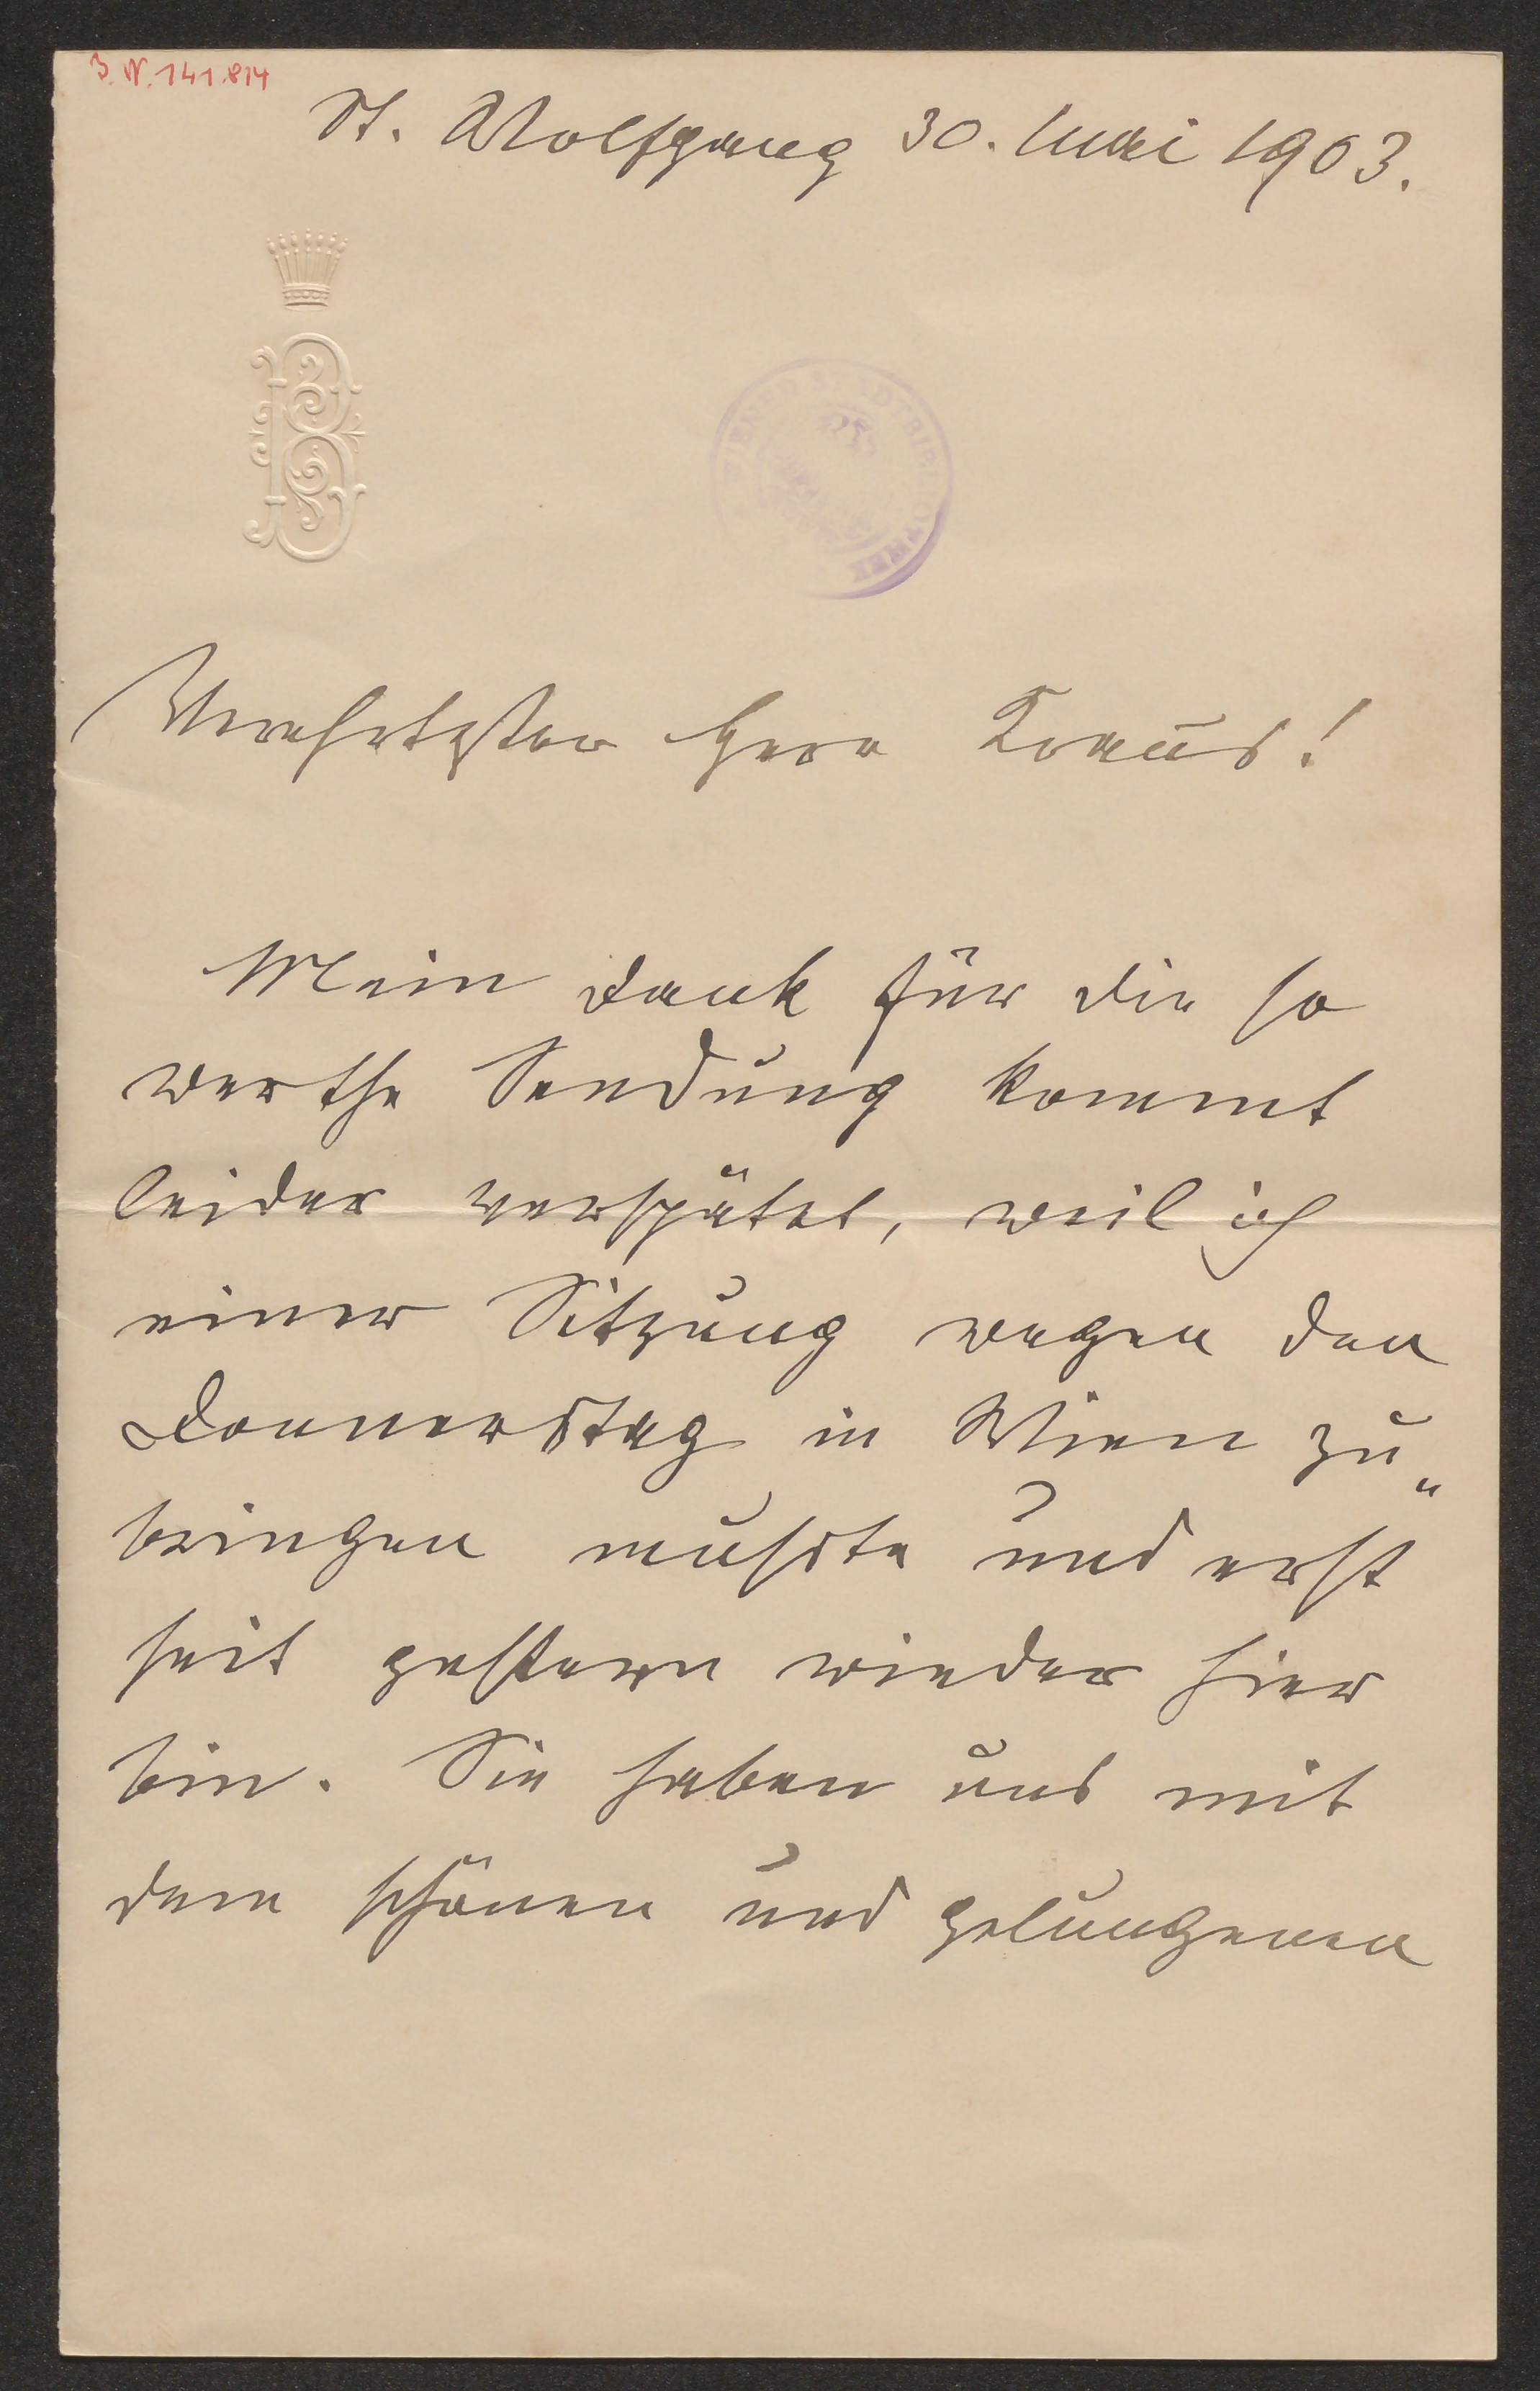 I.N. 141.814
St. Wolfgang 30. Mai 1903.
Verehrtester Herr Kraus!
Mein Dank für die so
werthe Sendung kommt
leider verspätet, weil ich
einer Sitzung wegen den
Donnerstag in Wien zu„
bringen mußte und erst
seit gestern wieder hier
bin. Sie haben uns mit
dem schönen und gelungenen